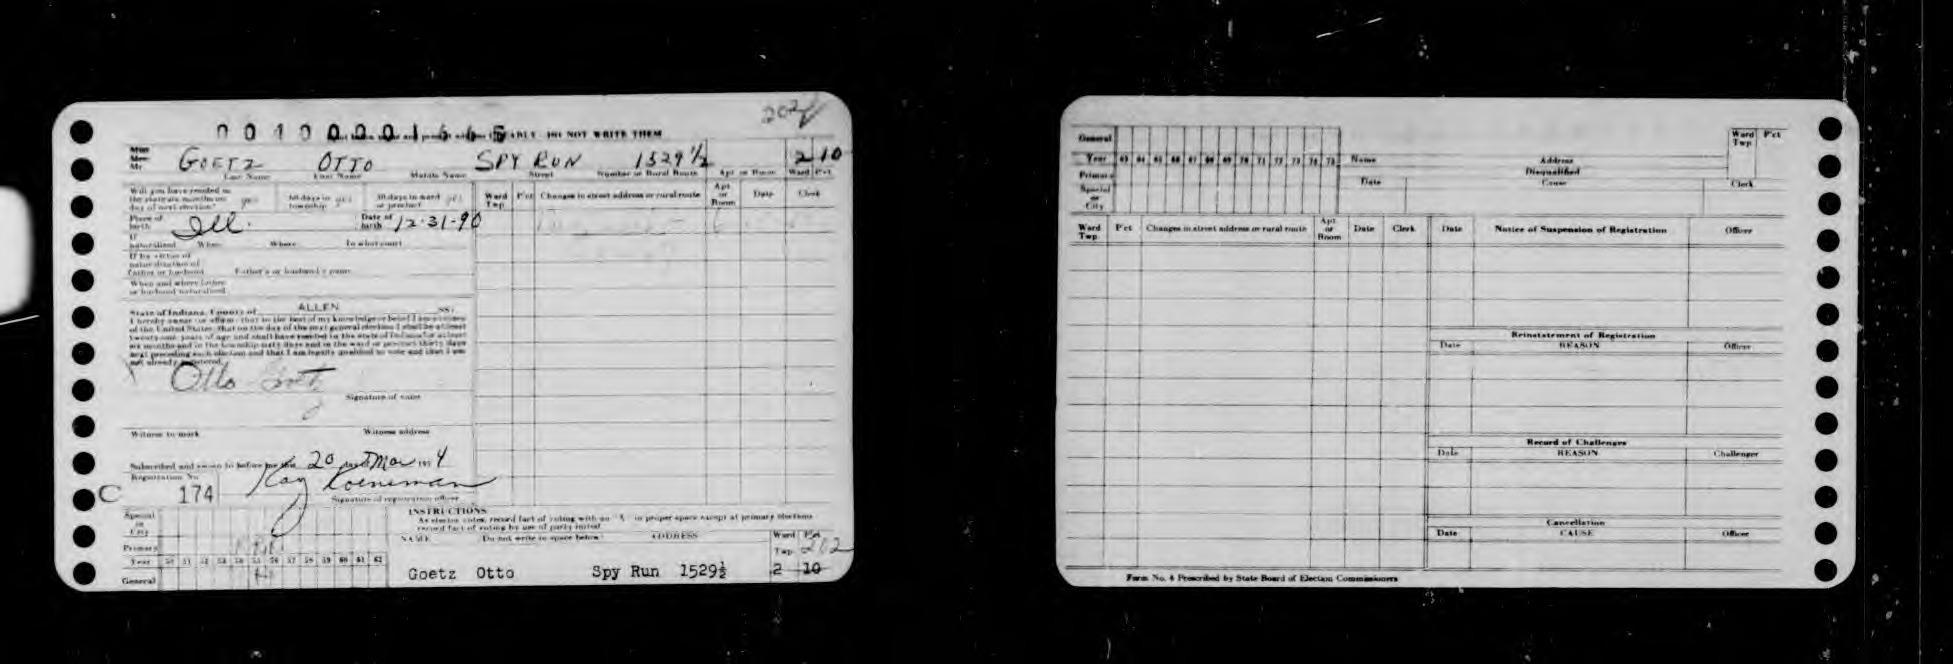 202
DO NOT WRITE THEM
Miss
Mrs.
Mr. GOETZ OTTO SPY RUN 1529 1/2 2 10
Last Name First Name Middle Name Street Number or Rural Route Apt or Room Ward Pct
Will you have resided in the state six months on day of next election? yes 60 days in township? yes 30 days in ward or precinct yes
Ward Twp. Pct Changes in street address or rural route Apt or Room Date Clerk
Place of birth Ill. Date of birth 12-31-90
If naturalized When Where In what court
If by virtue of naturalization of father or husband Father's or husband's name
When and where father or husband naturalized
State of Indiana, County of ALLEN SS:
I hereby swear (or affirm) that to the best of my knowledge or belief I am a citizen
of the United States, that on the day of the next general election I shall be at least
twenty-one years of age and shall have resided in the state of Indiana for at least
six months and in the township sixty days and in the ward or precinct thirty days
next preceding such election and that I am legally qualified to vote and that I am
not already registered.
Otto Goetz
Signature of voter
Witness to mark Witness address
Subscribed and sworn to before me this 20 day of Mar 195 4
Registration No.
C 174 Ray Koeneman
Signature of registration officer
INSTRUCTIONS
As elector votes, record fact of voting with an "X" in proper space except at primary elections
record fact of voting by use of party initial
Special or City
Primary
Year 50 51 52 53 54 55 56 57 58 59 60 61 62
General
NAME Do not write in space below ADDRESS Ward Pct
Twp. 202
Goetz Otto Spy Run 1529½ 2 10
General
Year 63 64 65 66 67 68 69 70 71 72 73 74 75
Primary
Special or City
Name Address Ward Twp. Pct
Disqualified
Date Cause Clerk
Ward Twp. Pct Changes in street address or rural route Apt or Room Date Clerk
Date Notice of Suspension of Registration Officer
Reinstatement of Registration
Date REASON Officer
Record of Challenges
Date REASON Challenger
Cancellation
Date CAUSE Officer
Form No. 4 Prescribed by State Board of Election Commissioners